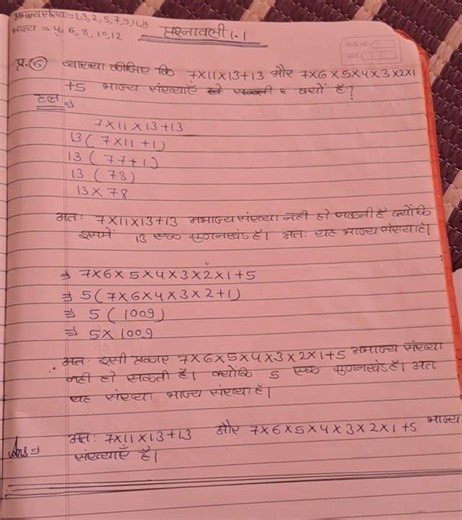 अभाज्य संख्या = 1,3,2,5,7,9,11,13
भाज्य = 4, 6, 8, 10, 12
प्रश्नावली 1.1
प्र.6 व्याख्या कीजिए कि 7×11×13+13 और 7×6×5×4×3×2×1
+5 भाज्य संख्याएँ क्यों है?
हल ⇒
7×11×13+13
13(7×11+1)
13(77+1)
13(78)
13×78
अतः 7×11×13+13 अभाज्य संख्या नही हो सकती है क्योंकि
इसमें 13 एक गुणनखंड है। अतः यह भाज्य संख्या है।
⇒ 7×6×5×4×3×2×1+5
⇒ 5(7×6×4×3×2+1)
⇒ 5(1009)
⇒ 5×1009
अतः इसी प्रकार 7×6×5×4×3×2×1+5 अभाज्य संख्या
नही हो सकती है। क्योकि 5 एक गुणनखंड है। अत
यह संख्या भाज्य संख्या है।
अतः 7×11×13+13 और 7×6×5×4×3×2×1+5 भाज्य
Ans ⇒ संख्याएँ है।